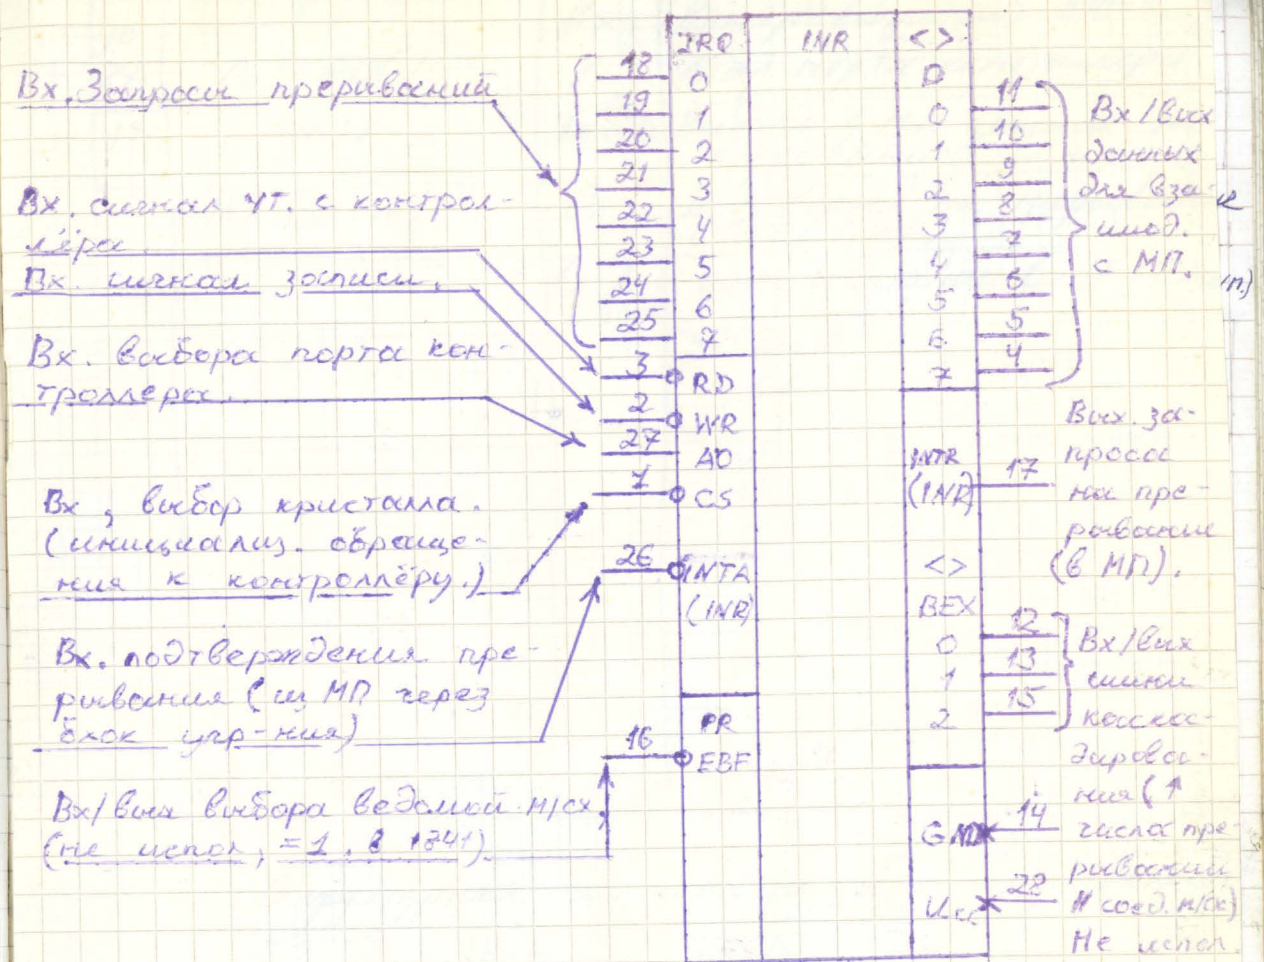 Вх. Запросы прерываний
Вх. сигнал чт. с контрол-
лёра
Вх. сигнал записи.
Вх. выбора порта кон-
троллера.
Вх, выбор кристалла.
(инициализ. обраще-
ния к контроллёру.)
Вх. подтверждения пре-
рывания (из МП через
блок упр-ния)
Вх/вых выбора ведомой м/сх.
(не испол, = 1. в 1841)
18
19
20
21
22
23
24
25
3
2
27
1
26
16
IRQ
0
1
2
3
4
5
6
7
RD
WR
A0
CS
INTA
(INR)
PR
EBF
INR
<>
D
0
1
2
3
4
5
6
7
INTR
(INR)
<>
BEX
0
1
2
GND
Ucc
11
10
9
8
7
6
5
4
17
12
13
15
14
28
Вх/вых
данных
для вза-
имод.
с МП.
Вых. за-
проса
на пре-
рывание
(в МП).
Вх/вых
шины
каска-
дирова-
ния (↑
числа пре-
рываний
и соед. м/сх)
Не испол.